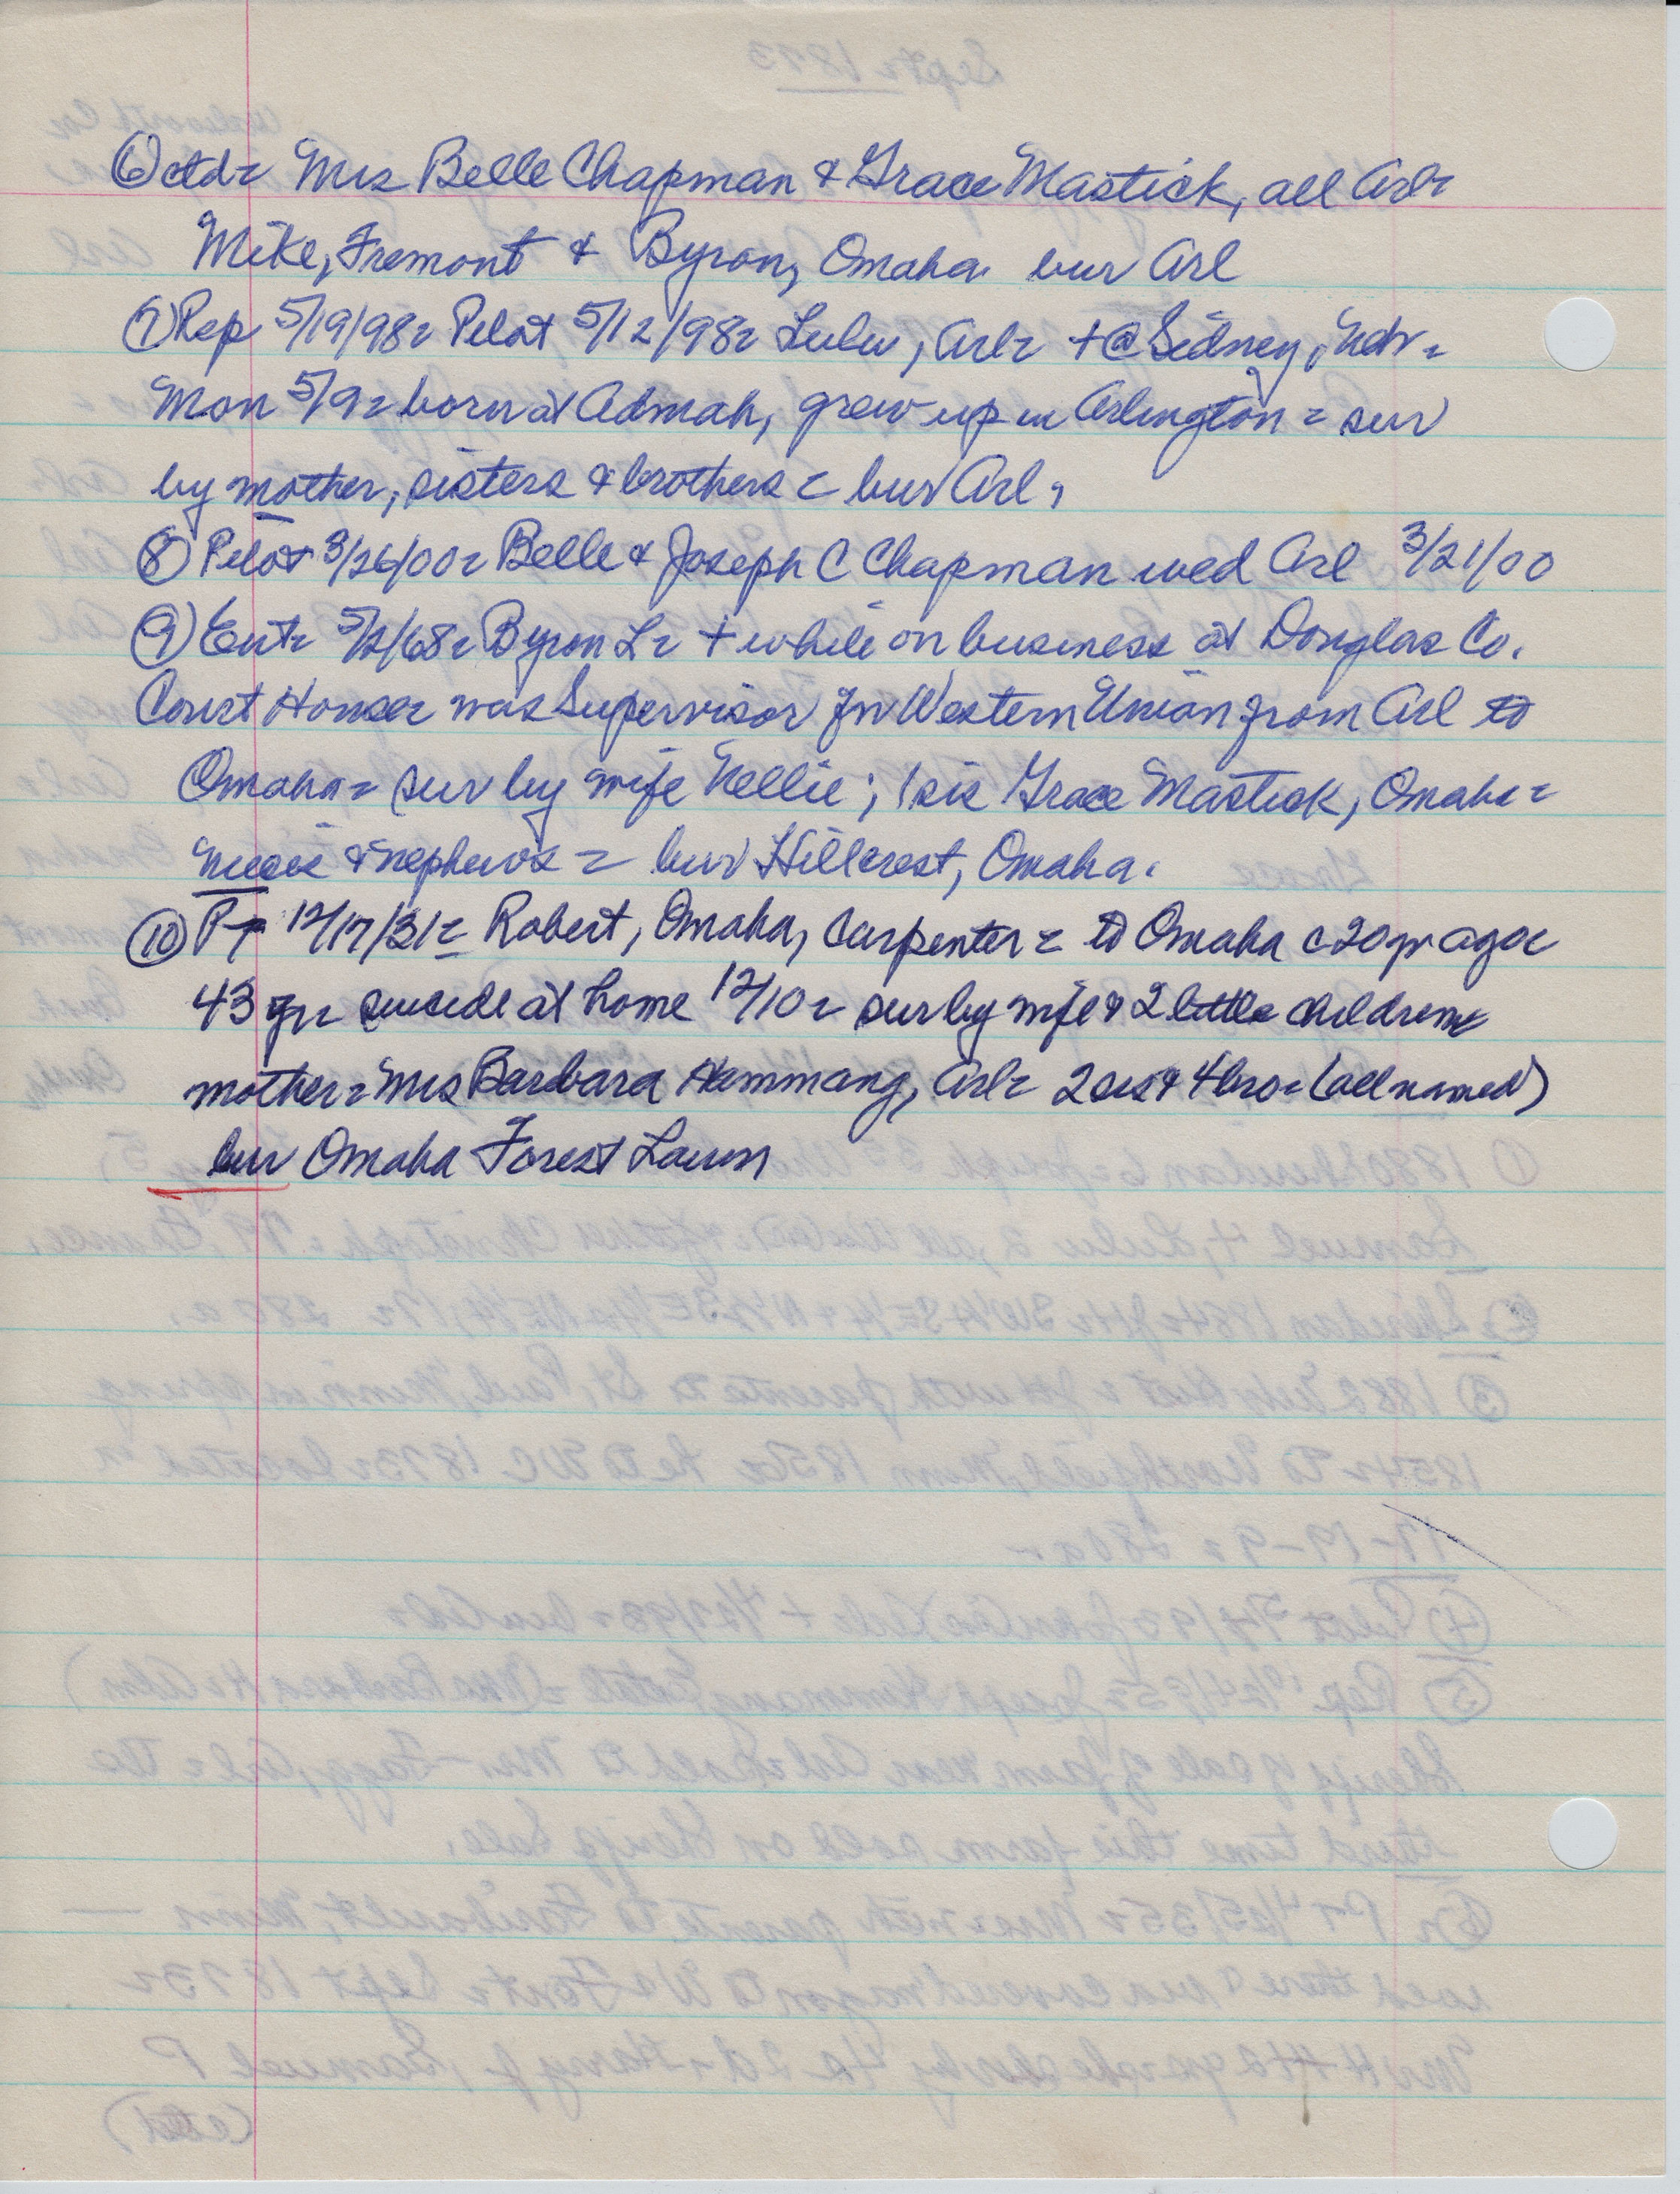 ⑥ ctd = Mrs Belle Chapman & Grace Mastick, all Arl =
Mike, Fremont & Byron, Omaha. bur Arl
⑦ Rep 5/19/98 = Pilot 5/12/98 = Lulu, Arl = + @ Sidney, Nebr =
Mon 5/9 = born at Admah, grew up in Arlington = sur
by mother, sisters & brothers = bur Arl.
⑧ Pilot 3/26/00 = Belle & Joseph C Chapman wed Arl 3/21/00
⑨ Ent = 5/2/68 = Byron L = + while on business at Douglas Co.
Court House = was Supervisor for Western Union from Arl to
Omaha = sur by wife Nellie; 1 sis Grace Mastick, Omaha =
nieces & nephews = bur Hillcrest, Omaha.
⑩ PT 12/17/31 = Robert, Omaha, Carpenter = to Omaha c 20 yr ago =
43 yr = suicide at home 12/10 = sur by wife & 2 little children =
mother = Mrs Barbara Hammang, Arl = 2 sis & 4 bro = (all named)
bur Omaha Forest Lawn